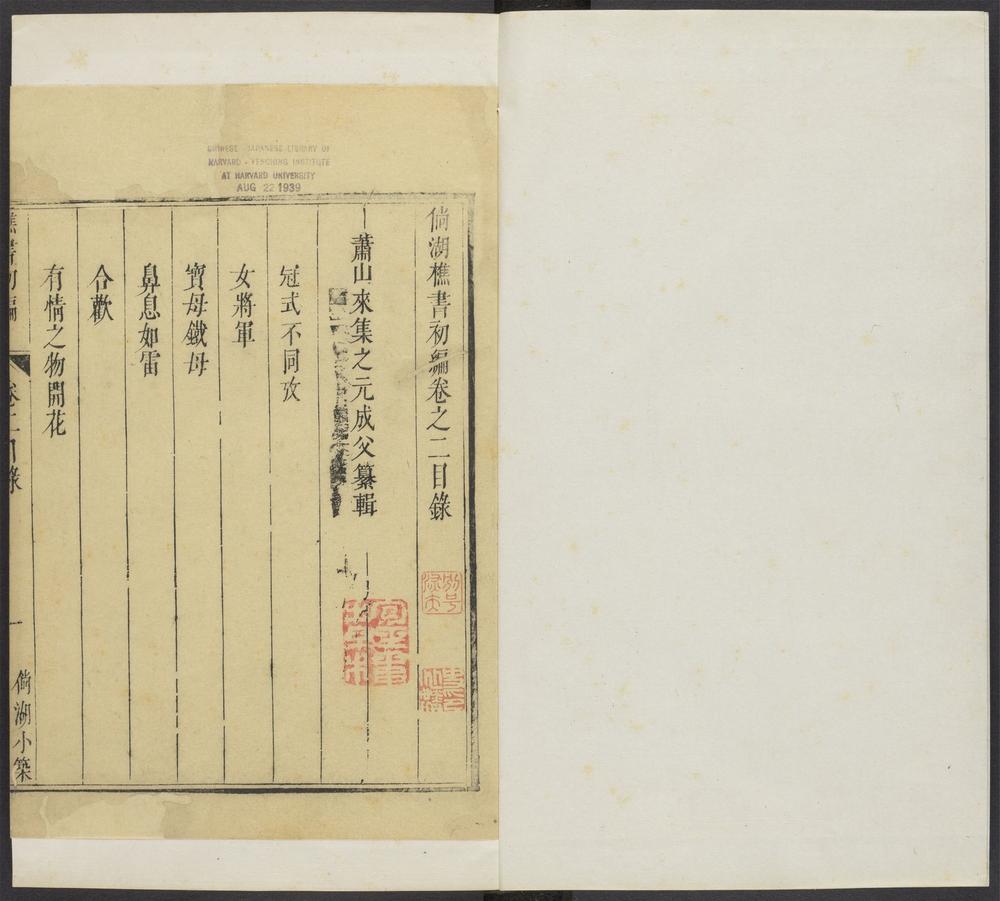 CHINESE - JAPANESE LIBRARY OF
HARVARD - YENCHING INSTITUTE
AT HARVARD UNIVERSITY
AUG 22 1939
倘湖樵書初編卷之二目錄
蕭山來集之元成父纂輯
冠式不同攷
女將軍
寳母鐵母
鼻息如雷
合歡
有情之物開花
樵書初編
卷二目錄
一
倘湖小築